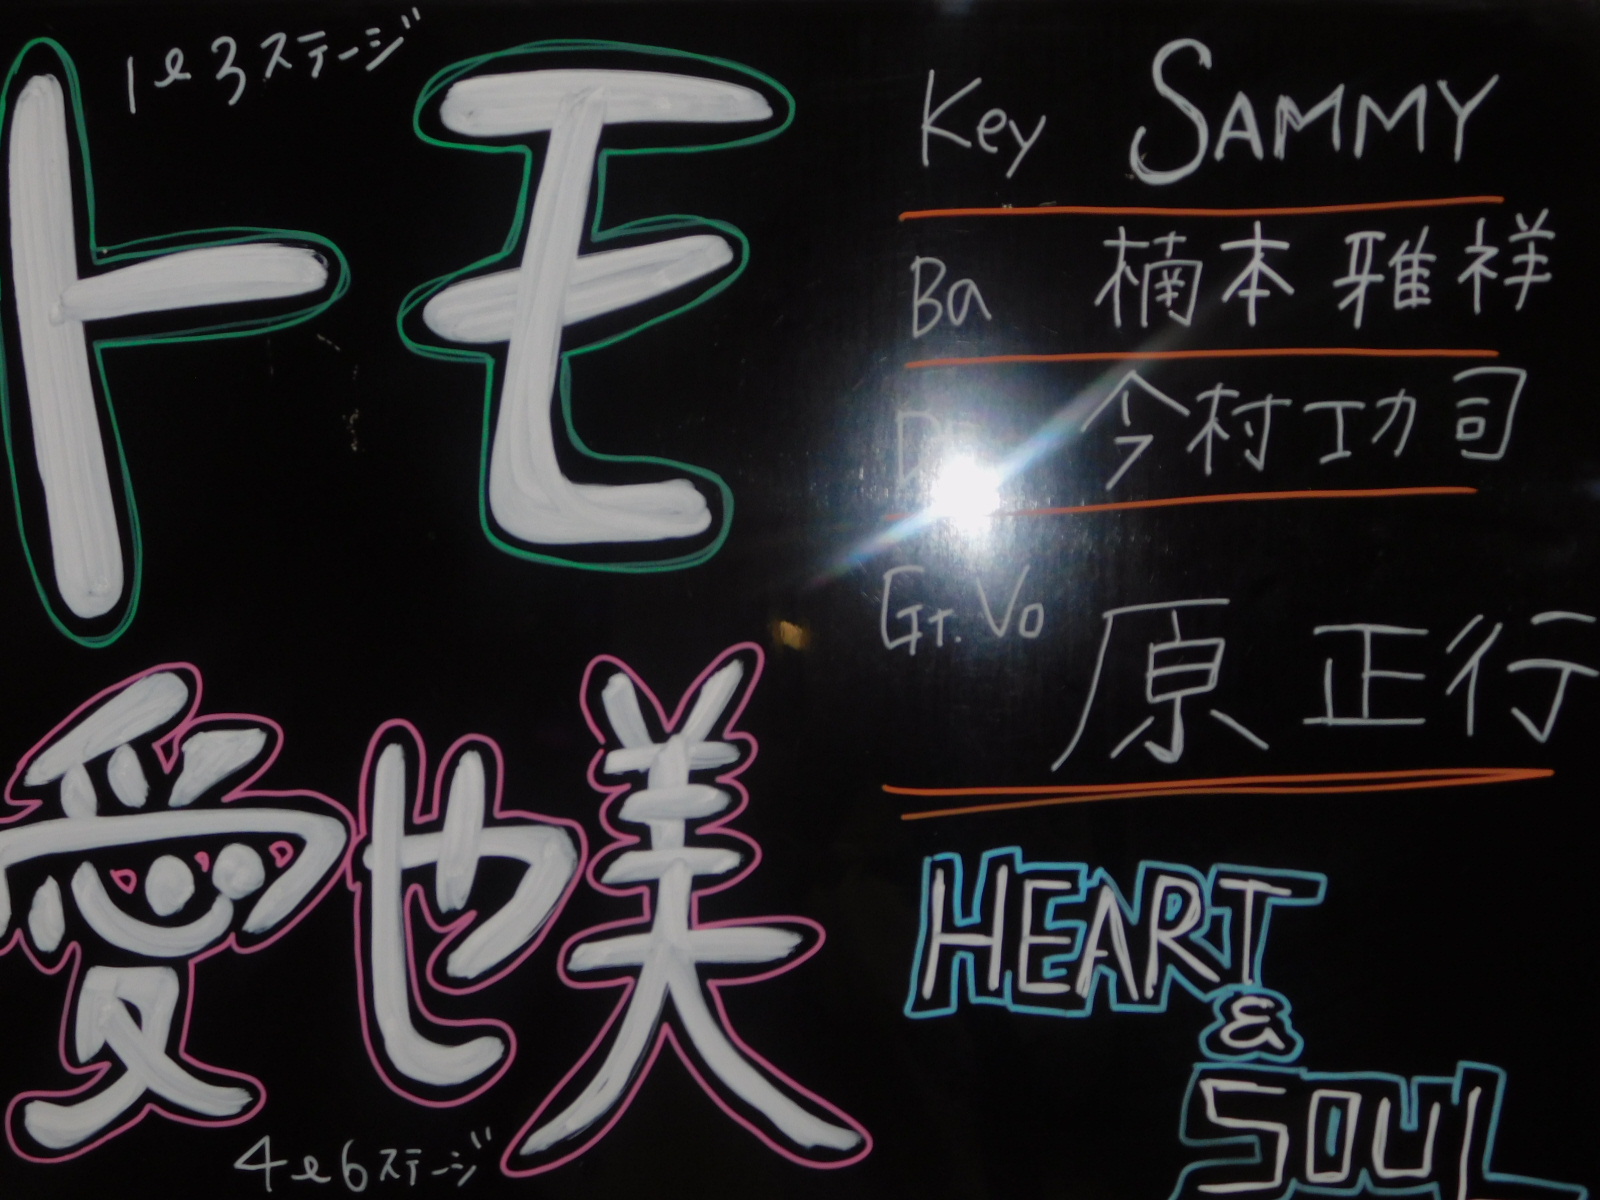 1〜3ステージ
トモ
愛也美
4〜6ステージ
Key SAMMY
Ba 楠本雅祥
今村功司
Gt. Vo 原正行
HEART
&
SOUL